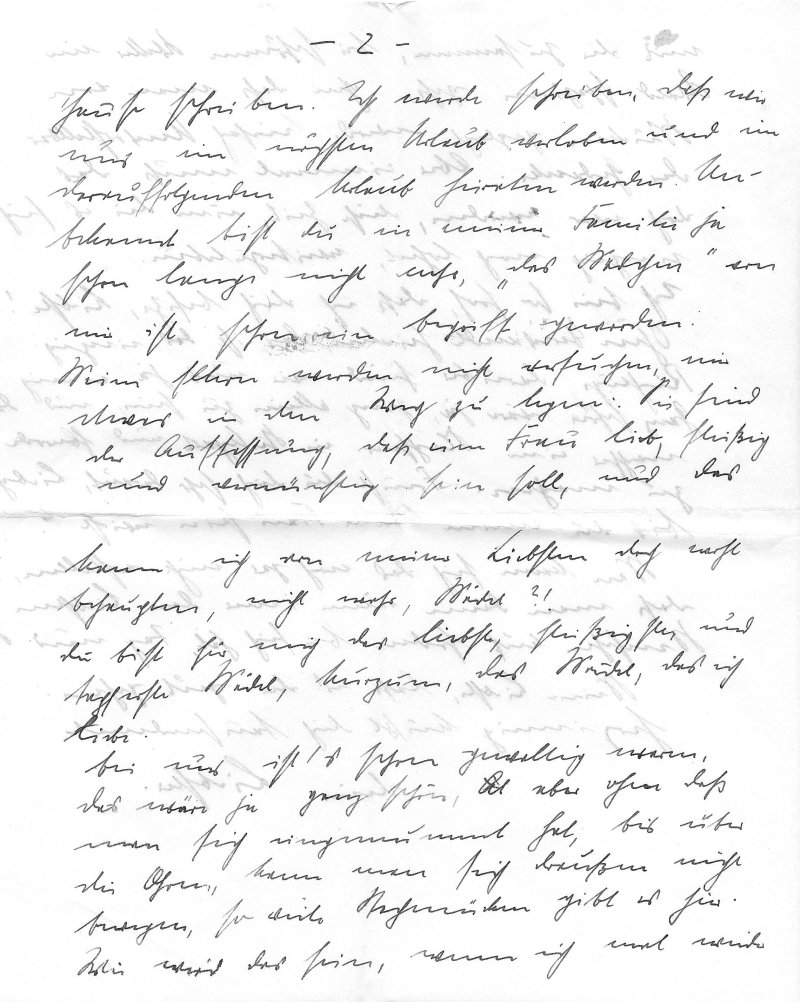 - 2 -
Hause schreiben. Ich werde schreiben, daß wir
uns im nächsten Urlaub verloben und im
darauffolgenden Urlaub heiraten werden. Un-
bekannt bist du in meiner Familie ja
schon lange nicht mehr, „das Mädchen" von
mir ist schon ein Begriff geworden.
Meine Eltern werden nicht versuchen, mir
etwas in den Weg zu legen. Sie sind
der Auffassung, daß eine Frau lieb, fleißig
und vernünftig sein soll, und das
kann ich von meiner Liebsten doch wohl
behaupten, nicht wahr, Mädel?!
du bist für mich das liebste, fleißigste, und
tapferste Mädel, kurzum, das Mädel, das ich
liebe.
bei uns ist's schon gewaltig warm,
das wäre ja ganz schön, aber ohne daß
man sich eingemummt hat, bis über
die Ohren, kann man sich draußen nicht
bewegen, so viele Stechmücken gibt es hier.
Wie wird das sein, wenn ich mal wieder